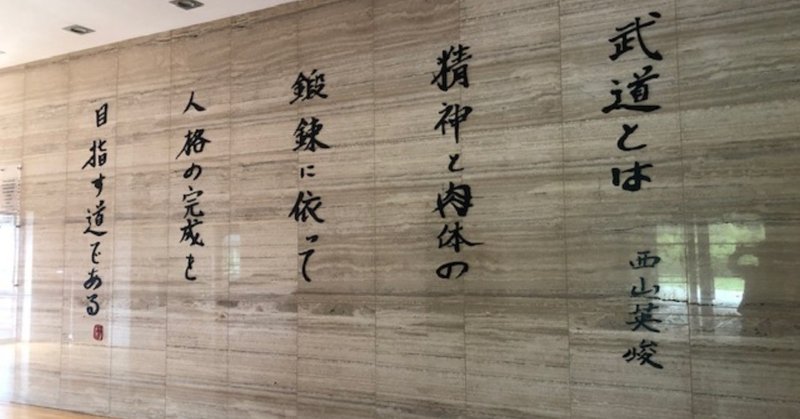 武道とは
西山英峻
精神と肉体の
鍛錬に依って
人格の完成を
目指す道である